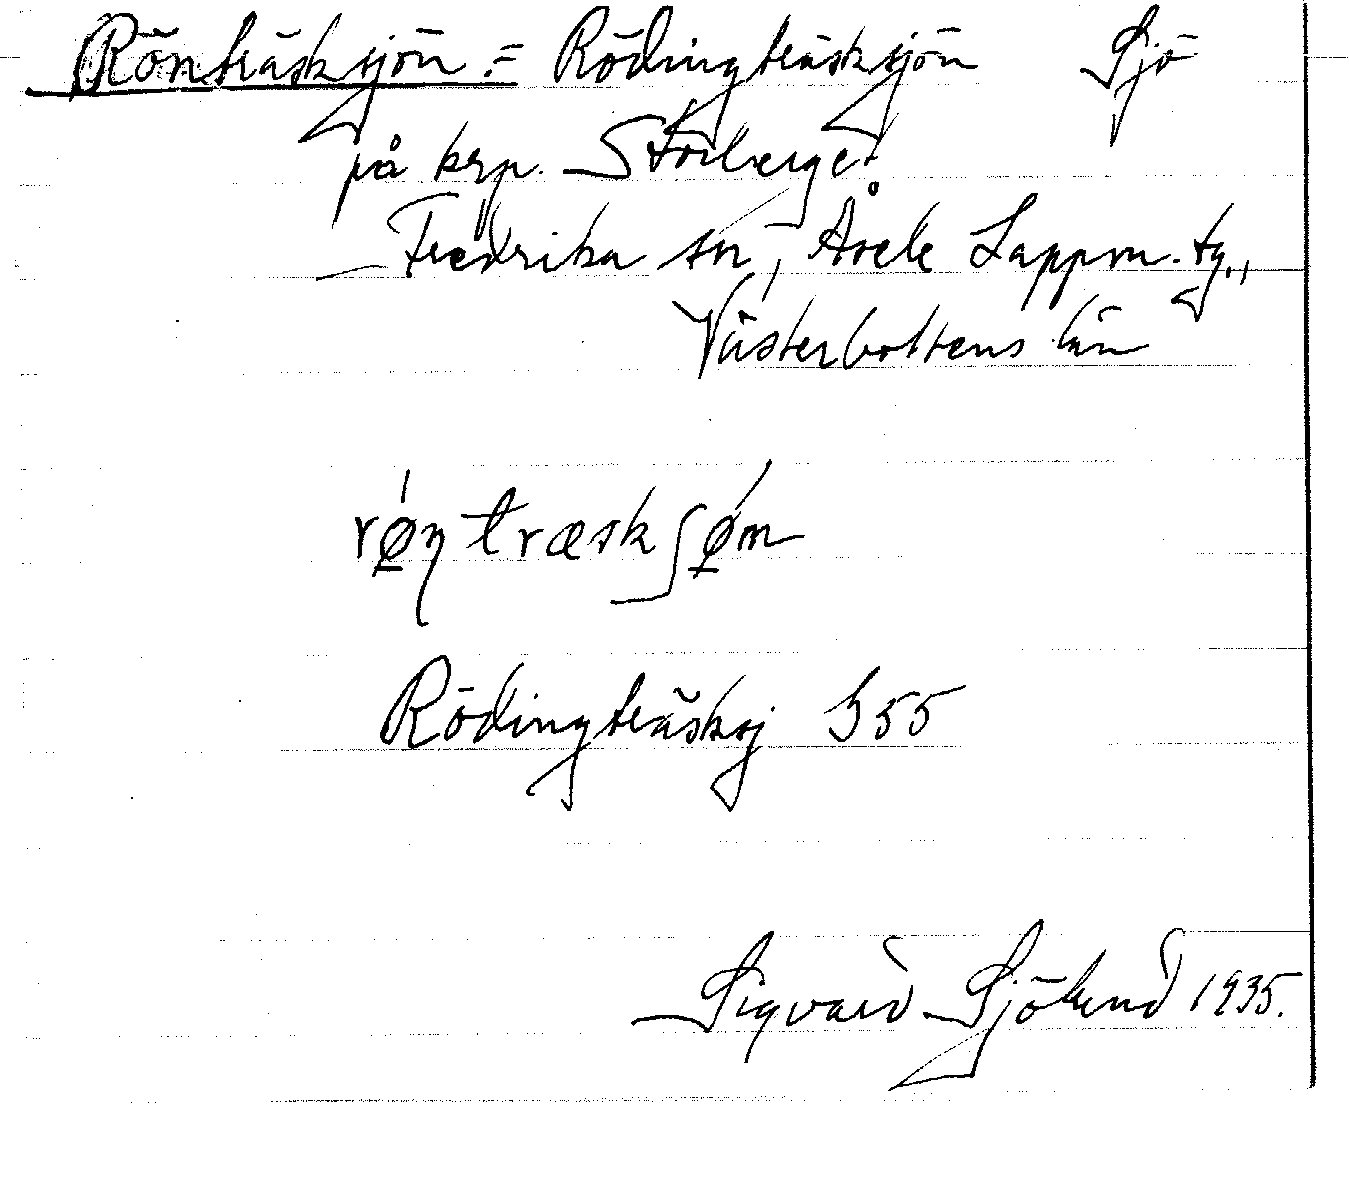 Rönträsksjön = Rödingträsksjön Sjö
på krp. Storberget
Fredrika sn, Åsele Lappm. tg.,
Västerbottens län
røŋtræskʃøn
Rödingträsksj S55
Sigvard Sjölund 1935.